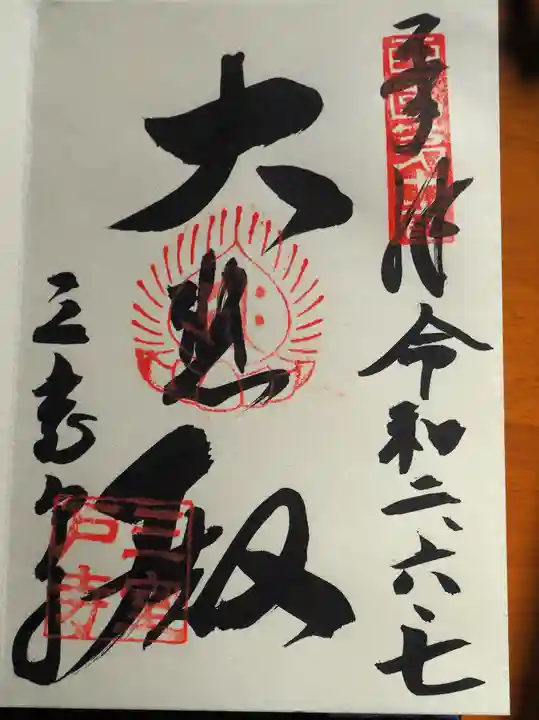 奉拝 令和二、六、七
大悲殿
三室戸寺